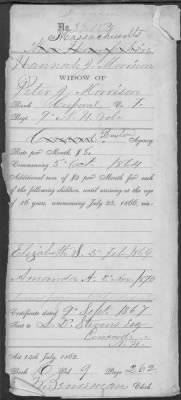 No.
Massachusetts
Hannah J. Morrison
WIDOW OF
Peter J. Morrison
Rank Corporal Co. F.
Reg't 9" N.H. Vols
Concord Boston Agency
Rate per Month, $8.
Commencing 5" Oct. 1864
Additional sum of $2 per month for each
of the following children, until arriving at the age
of 16 years, commencing July 25, 1866, viz:
Elizabeth S. 5" Feb. 1869
Amanda A. 1870
Certificate dated 9" Sept 1867
Sent to S. D. Stevens Esq
Concord
N.H.
Act 14th July, 1862.
Book Vol. 9 Page 262
Clerk.